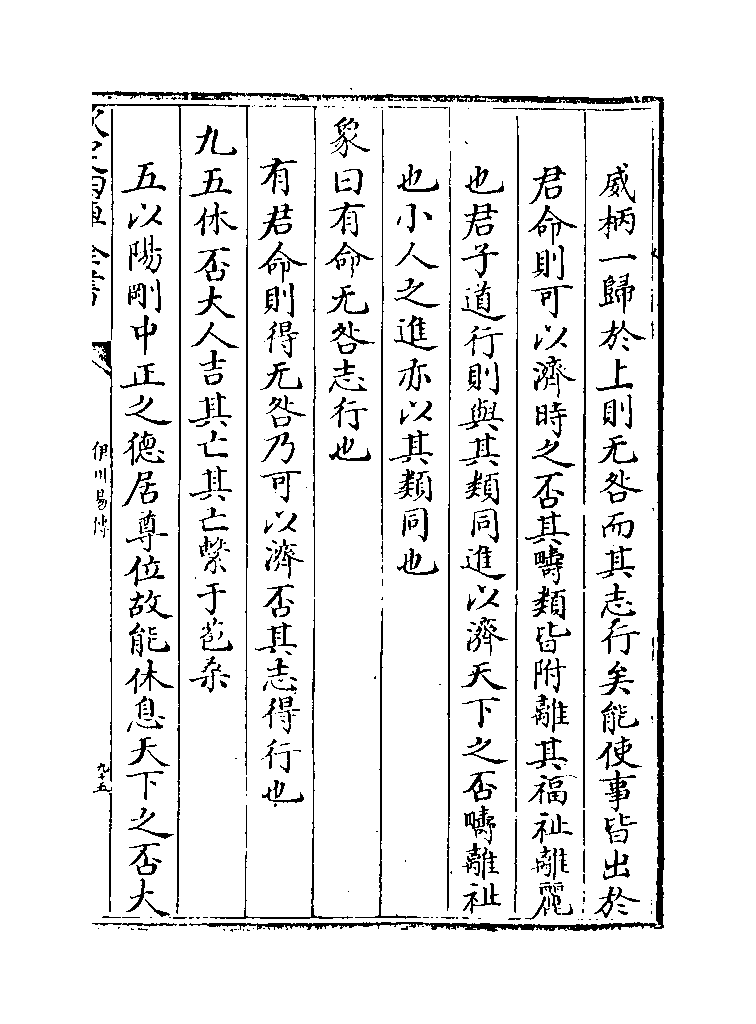 威柄一歸於上則无咎而其志行矣能使事皆出於
君命則可以濟時之否其疇類皆附離其福祉離麗
也君子道行則與其類同進以濟天下之否疇離祉
也小人之進亦以其類同也
象曰有命无咎志行也
有君命則得无咎乃可以濟否其志得行也
九五休否大人吉其亡其亡繫于苞桒
五以陽剛中正之德居尊位故能休息天下之否大
伊川易傳
九十五